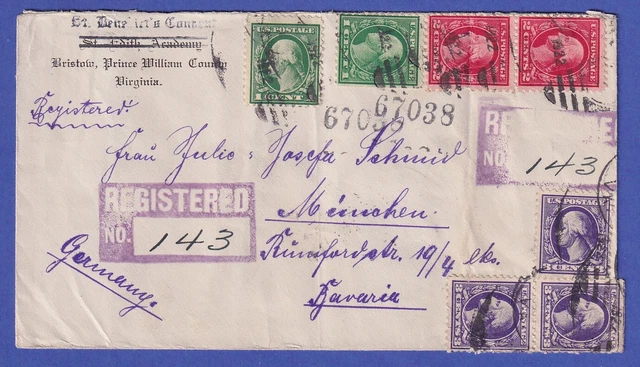 St. Benedict's Convent
St. Edith Academy
Bristow, Prince William County
Virginia.
Registered.
U.S. POSTAGE
1 CENT 1
U.S. POSTAGE
U.S. POSTAGE
67038
67038
REGISTERED
NO. 143
Frau Julie-Josefa Schmid
München.
Rumfordstr. 19/4 lks.
Bavaria
Germany.
REGISTERED
NO. 143
U.S. POSTAGE
3 CENTS 3